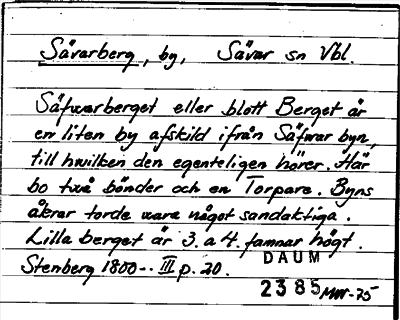 Sävarberg, by, Sävar sn Vbl.
Säfwarberget eller blott Berget är
en liten by afskild ifrån Säfwar byn,
till hwilken den egenteligen hörer. Här
bo två bönder och en Torpare. Byns
åkrar torde vara något sandaktiga.
Lilla berget är 3. a 4. famnar högt.
Stenberg 1800-- III p. 20.
DAUM
2385 MW-75